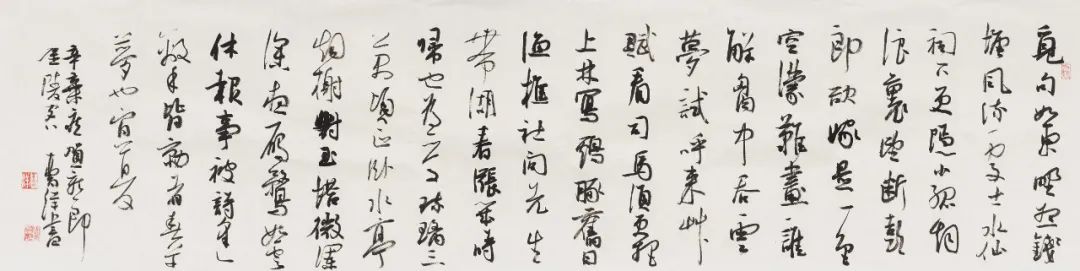 覓句如東野想錢
塘風流處士水仙
祠下更隱小孤烟
浪裏望斷彭
郎欲嫁是一色
空濛難畫誰
解胸中吞雲
夢試呼来艸
賦看司馬須更把
上林寫鷄豚舊日
漁樵社問先生
帶湖春漲幾時
歸也為愛琉璃三
萬頃正卧水亭
烟榭對玉塔微瀾
深夜雁鶩如雲
休報事被詩逢
敵手皆勍者春草
夢也宜夏
辛棄疾賀新郎
書